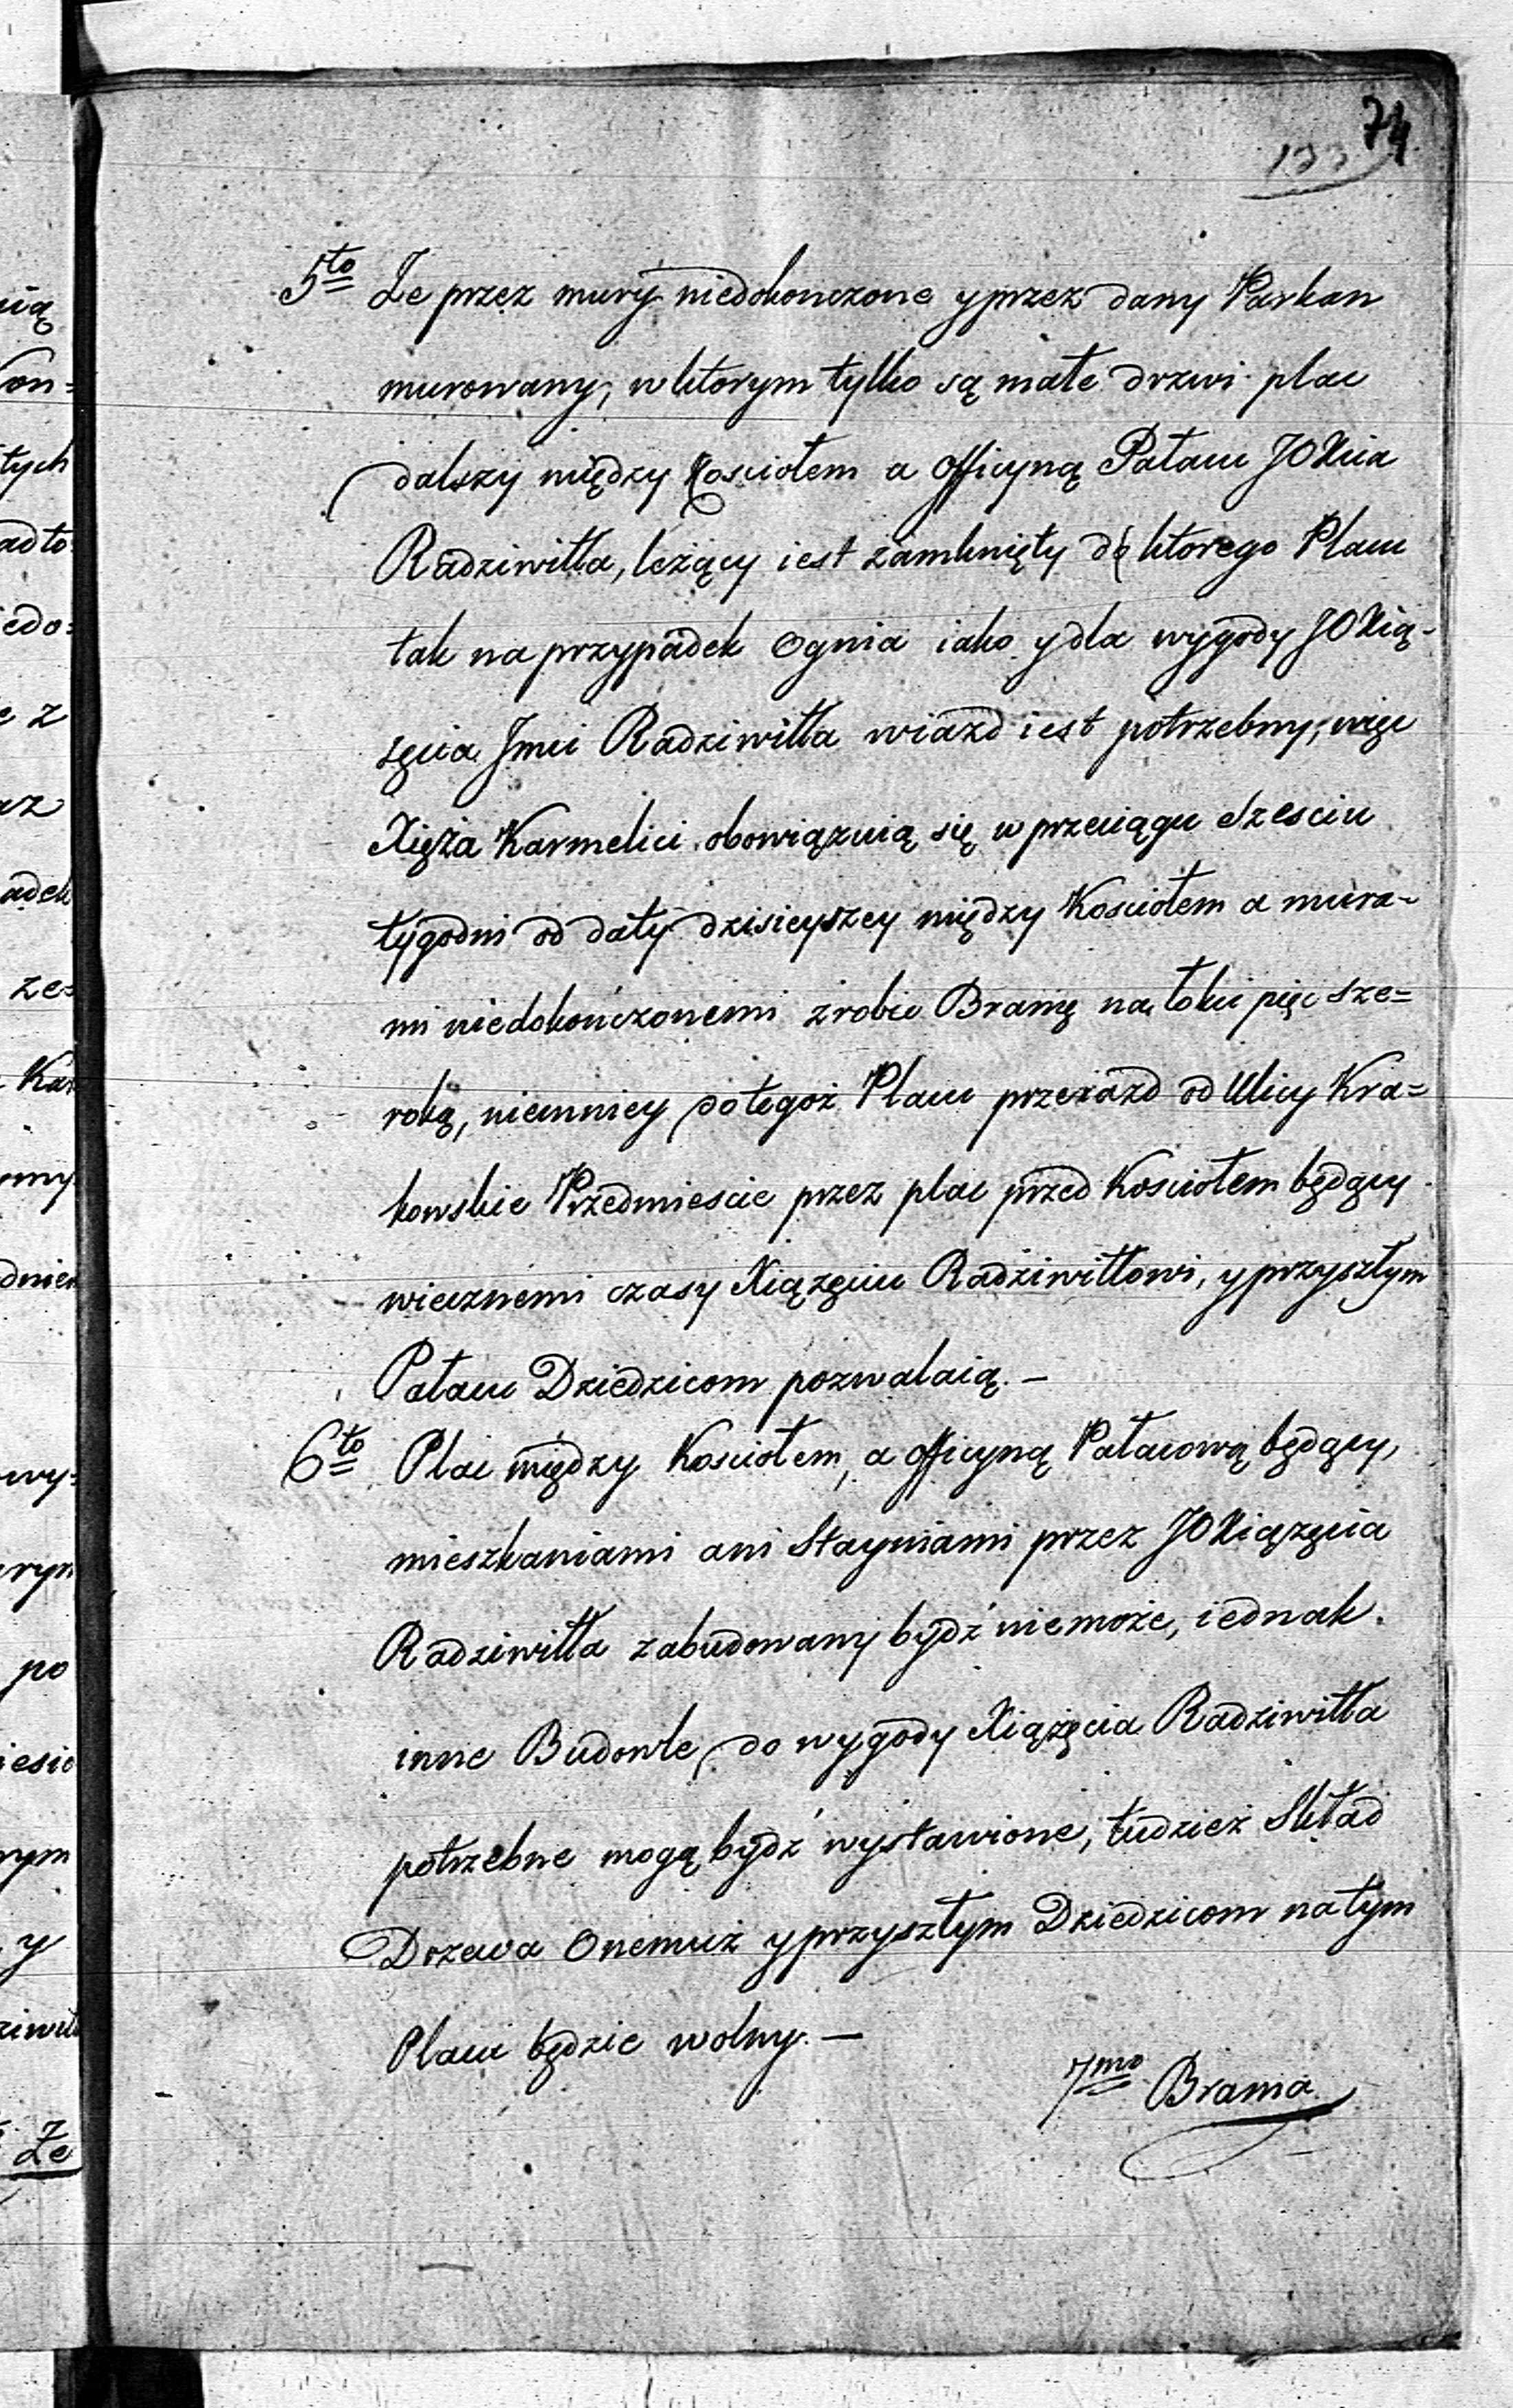 74
133
5to Ze przez mury niedokonczone y przez dany Parkan
murowany, w ktorym tylko są małe drzwi plac
dalszy między Kosciołem a officyną Pałacu JOXcia
Radziwiłła, leżący iest zamknięty do ktorego Placu
tak na przypadek Ognia iako y dla wygody JOXią-
żęcia Jmci Radziwiłła wiazd iest potrzebny, więc
Xięża Karmelici obowiązuią się w przeciągu szesciu
tygodni od daty dzisieyszey między Kosciołem a mura-
mi niedokończonemi zrobic Bramę na łokci pięc sze=
roką, niemniey do tegoż Placu przeiazd od Ulicy Kra=
kowskie Przedmiescie przez plac przed Kosciołem będący
wiecznemi czasy Xiążęciu Radziwiłłowi, y przyszłym
Pałacu Dziedzicom pozwalaią. —
6to Plac między Kosciołem, a officyną Pałacową będący,
mieszkaniami ani Stayniami przez JOXiążęcia
Radziwiłła zabudowany bydź niemoże, iednak
inne Budowle do wygody Xiążęcia Radziwiłła
potrzebne mogą bydź wystawione, tudzież Skład
Drzewa Onemuż y przyszłym Dziedzicom na tym
Placu będzie wolny. —
7mo Brama